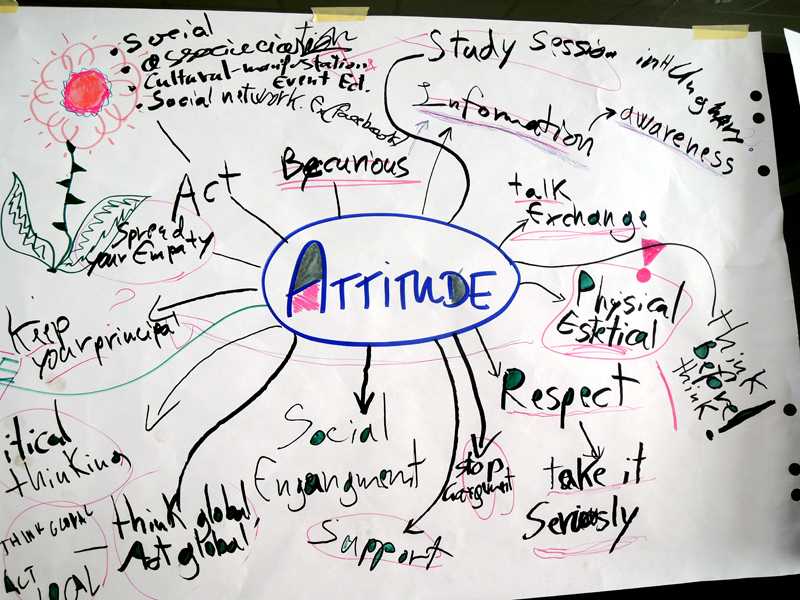 Social
Cultural-manifestations
Event Ed.
Social network. Ex (Facebook)
Study Session in Hungary
Information
awareness
Be curious
Act
talk
Exchange
Spread
your Empaty
ATTITUDE
Physical
Estetical
think
Before
think!
Keep
your principal
Respect
Social
Engangment
itical
thinking
stop
take it
Seriously
think global
Act global
Support
THINK GLOBAL
ACT
LOCAL